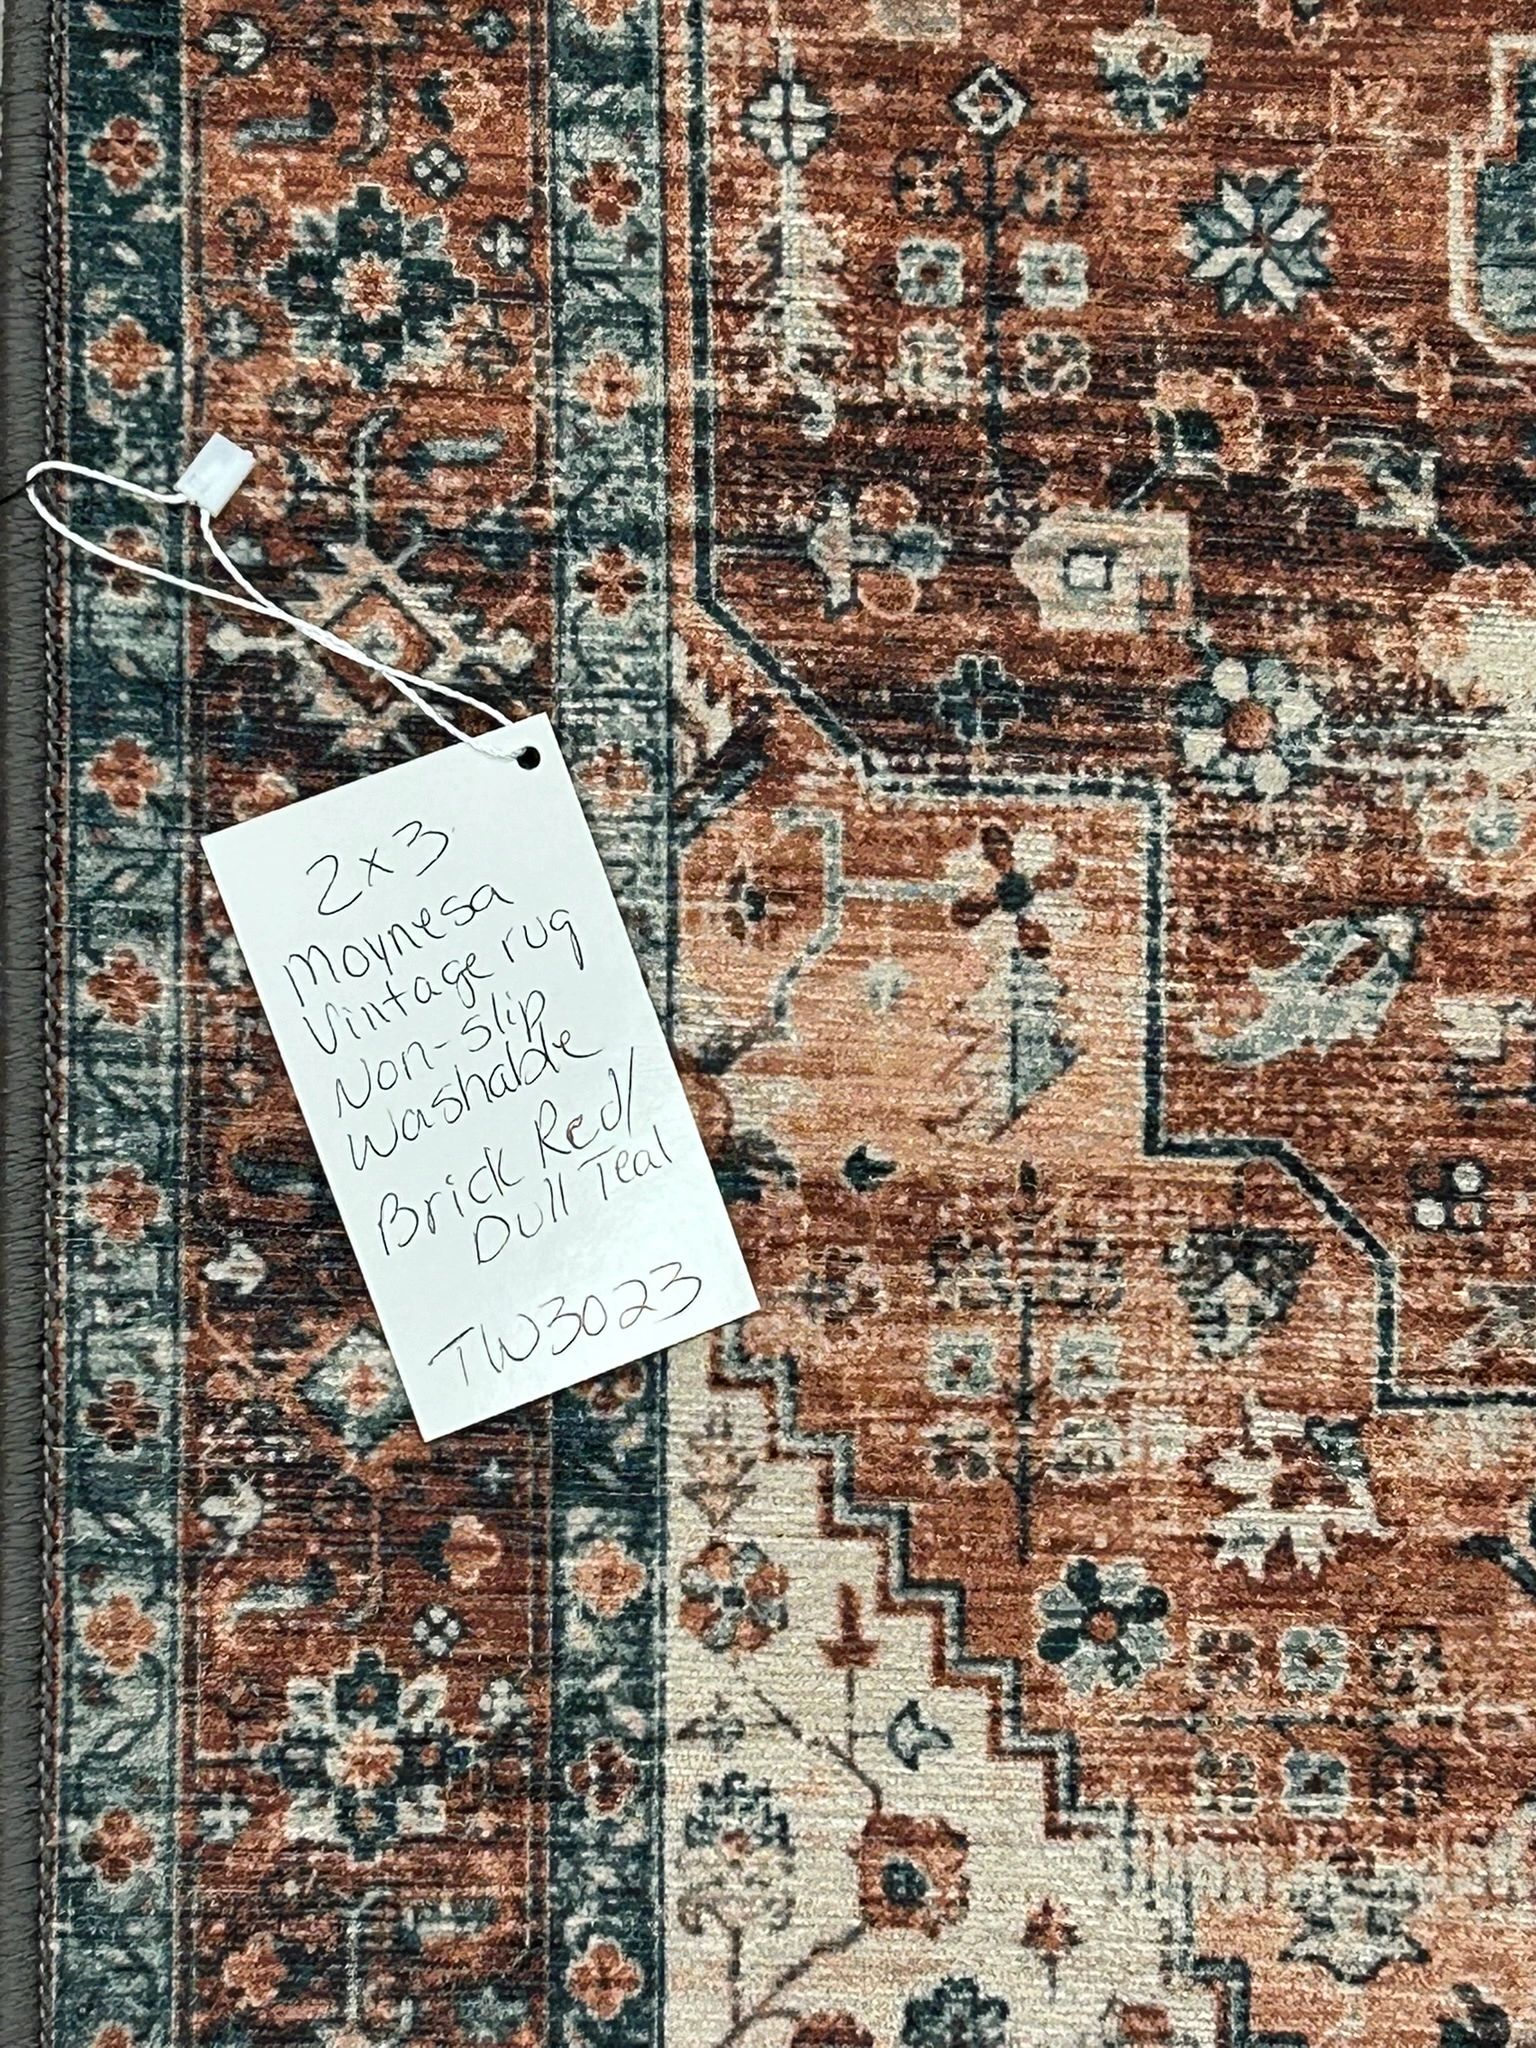 2x3
Moynesa
Vintage rug
Non-slip
Washable
Brick Red/
Dull Teal
TW3023